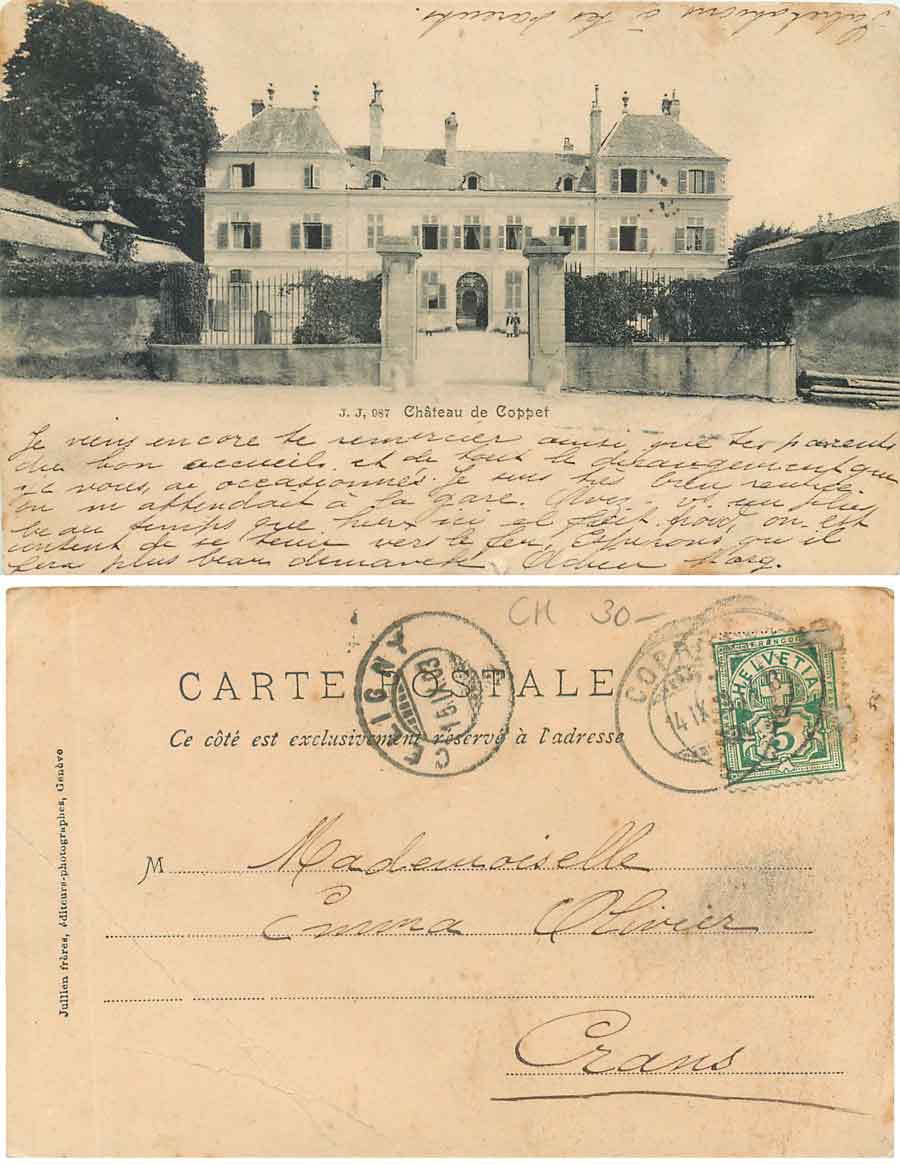 Salutations à tes parents.
J. J, 987 Château de Coppet
Je viens encore te remercier ainsi que tes parents
du bon accueil et de tout le dérangement que
je vous ai occasionnés. Je suis très bien rentrée
on m'attendait à la gare. un plus
beau temps que hier ici il fait froid, on est
content de se tenir vers le feu. Espérons qu'il
fera plus beau dimanche. Adieu Marg.
CH 30-
CARTE POSTALE
Ce côté est exclusivement réservé à l'adresse
CÉLIGNY
15 IX 03
COPPET
14 IX
FRANCO
HELVETIA
5
Jullien frères, éditeurs-photographes, Genève
M Mademoiselle
Emma Olivier
Crans